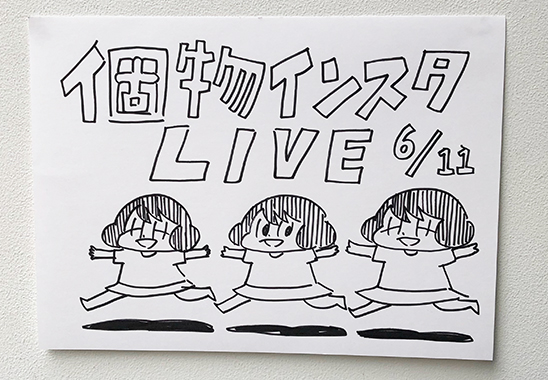 個物インスタ
LIVE 6/11